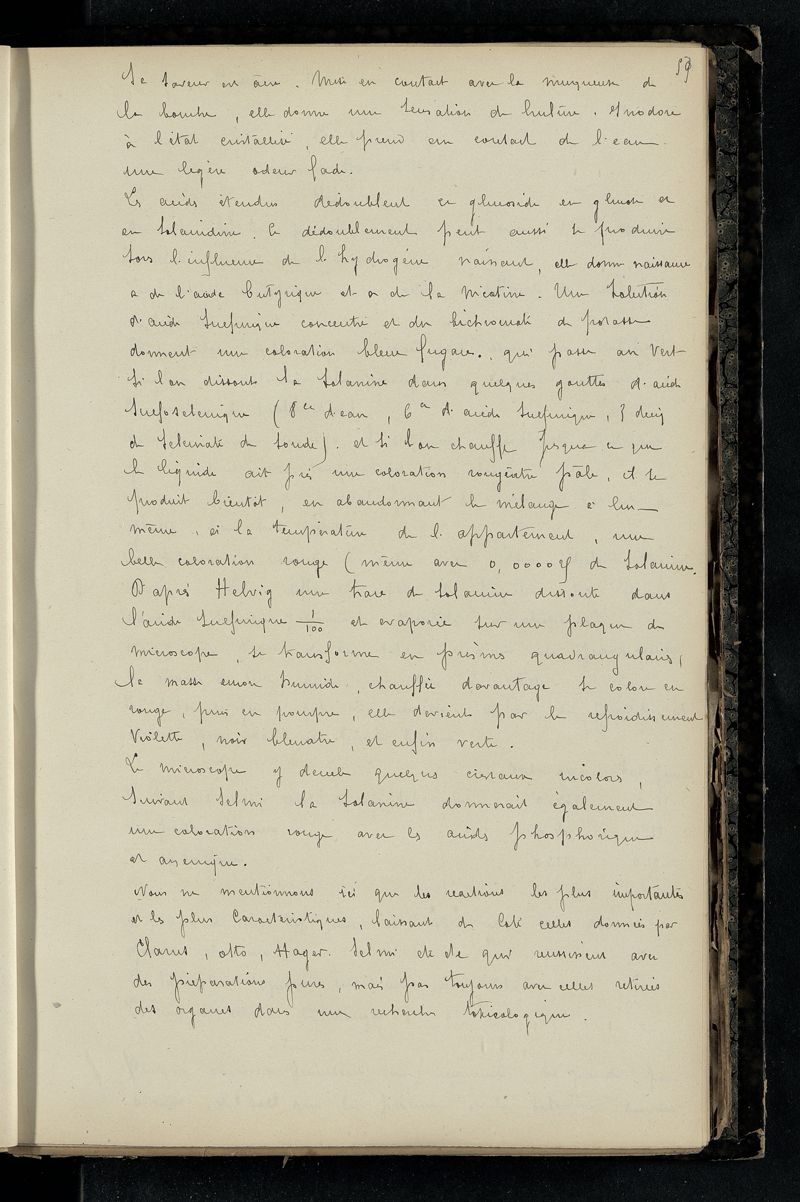 59
Sa saveur est âcre. Mise en contact avec la muqueuse de
la bouche, elle donne une sensation de brulûre. Inodore
à l'état cristallisé, elle prend au contact de l'eau
une legère odeur fade.
Les acides étendus dédoublent ce glucoside en glucose et
en solanidine. Ce dédoublement peut aussi se produire
sous l'influence de l'hydrogène naissant, elle donne naissance
a de l'acide butyrique et a de la nicotine. Une solution
d'acide sulfurique concentré et du bichromate de potasse
donnent une coloration bleue fugace, qui passe au vert
Si l'on dissout la solanine dans quelques gouttes d'acide
sulfoselenique (8cc d'eau, 6cc d'acide sulfurique, 3 decig
de seleniate de soude). et si l'on chauffe jusqua ce que
le liquide ait pris une coloration rougeâtre pâle, il se
produit bientôt, en abandonnant le mélange à lui-
même, à la température de l'appartement, une
belle coloration rouge (même avec 0,00002g de solanine.
D'après Helvig une trace de solanine dissoute dans
l'acide sulfurique 1/100 et evaporée sur une plaque de
microscope, se transforme en prismes quadrangulaires,
la masse encore humide, chauffée davantage se colore en
rouge, puis en pourpre, elle devient par le refroidissement
violette, noir bleuatre, et enfin verte.
Le microscope y décele quelques cristaux incolores,
Suivant Selmi la solanine donnerait également
une coloration rouge avec les acides phosphorique
et arsenique.
Nous ne mentionnons ici que les reactions les plus importantes
et les plus caracteristiques, laissant de coté celles données par
Clarus, Otto, Hager. Selmi etc etc qui reussissent avec
des préparations pures, mais pas toujours avec celles retirées
des organes dans une recherche toxicologique.